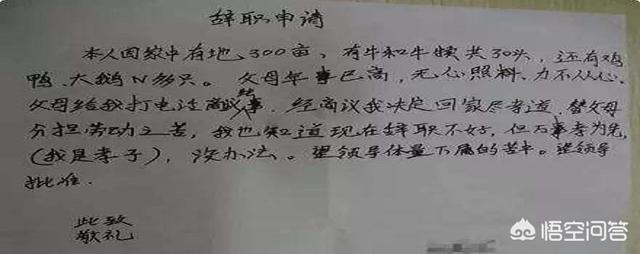 辞职申请
本人因家中有地300亩、有牛和牛犊共30头，还有鸡
鸭、大鹅N多只。父母年事已高，无心照料、力不从心。
父母给我打电话商议事。经商议我决定回家尽孝道，替父母
分担劳动之苦，我也知道现在辞职不好，但万事孝为先
(我是孝子)，没办法。望领导体量下属的苦中。望领导
批准.
此致
敬礼
悟空问答